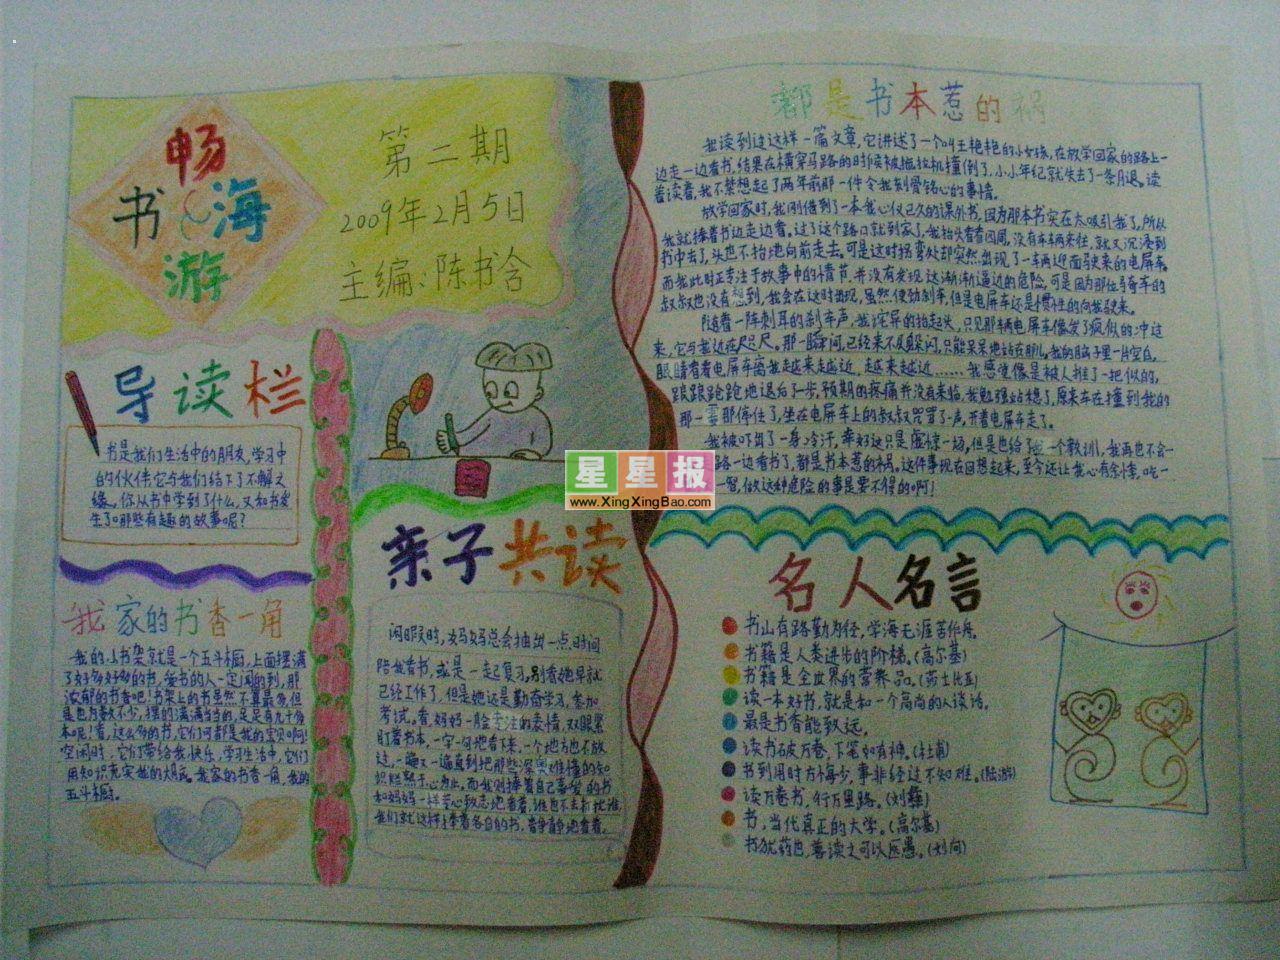 畅
书海
游
第二期
2009年2月5日
主编:陈书含
导读栏
书是我们生活中的朋友,学习中
的伙伴,它与我们结下了不解之
缘。你从书中学到了什么,又和书发
生了哪些有趣的故事呢?
我家的书香一角
我的小书架就是一个五斗橱,上面摆满
了好多好多的书,爱书的人一定闻的到,那
浓郁的书香吧!书架上的书虽然不算最多,但
是也为数不少,摆的满满当当的,足足有九十多
本呢!看,这么多的书,它们可都是我的宝贝啊!
空闲时,它们带给我快乐,学习生活中,它们
用知识充实我的大脑。我家的书香一角,我的
五斗橱。
亲子共读
闲暇时,妈妈总会抽出一点时间
陪我看书,或是一起复习。别看她早就
已经工作了,但是她还是勤奋学习,参加
考试。看,妈妈一脸专注的表情,双眼紧
盯着书本,一字一句地看下来,一个地方也不放
过,一遍又一遍直到把那些深奥难懂的知
识烂熟于心为止。而我则捧着自己喜爱的书
和妈妈一样专心致志地看着,谁也不去打扰谁,
我们就这样捧着各自的书,静静地看着。
都是书本惹的祸
我读到过这样一篇文章,它讲述了一个叫王艳艳的小女孩,在放学回家的路上一
边走一边看书,结果在横穿马路的时候被拖拉机撞倒了,小小年纪就失去了一条月退。读
着读着,我不禁想起了两年前那一件令我刻骨铭心的事情。
放学回家时,我刚借到了一本我心仪已久的课外书,因为那本书实在太吸引我了,所以
我就捧着书边走边看。过了这个路口就到家了,我抬头看看四周,没有车辆来往,就又沉浸到
书中去了,头也不抬地向前走去。可是这时拐弯处却突然出现了一车两迎面驶来的电屏车。
而我此时正专注于故事中的情节,并没有发现这渐渐逼近的危险,可是因为那位骑车的
叔叔也没有想到,我会在这时出现,虽然使劲刹车,但是电屏车还是惯性的向我驶来。
随着一阵刺耳的刹车声,我诧异的抬起头,只见那辆电屏车像发了疯似的冲过
来,它与我近在咫尺。那一瞬间,已经来不及躲闪,只能呆呆地站在那儿。我的脑子里一片空白,
眼睛看着电屏车离我越来越近,越来越近……我感觉像是被人推了一把似的,
踉踉跄跄地退后了一步,预期的疼痛并没有来临,我勉强站稳了,原来车在撞到我的
那一霎那停住了,坐在电屏车上的叔叔咒骂了一声,开着电屏车走了。
我被吓出了一身冷汗,幸好这只是虚惊一场,但是也给了我一个教训,我再也不会一
路一边看书了,都是书本惹的祸,这件事现在回想起来,至今还让我心有余悸,吃一
一智,做这种危险的事是要不得的啊!
星星报
www.XingXingBao.com
名人名言
书山有路勤为径,学海无涯苦作舟。
书籍是人类进步的阶梯。(高尔基)
书籍是全世界的营养品。(莎士比亚)
读一本好书,就是和一个高尚的人谈话。
最是书香能致远。
读书破万卷,下笔如有神。(杜甫)
书到用时方恨少,事非经过不知难。(陆游)
读万卷书,行万里路。(刘彝)
书,当代真正的大学。(高尔基)
书犹药也,善读之可以医愚。(刘向)